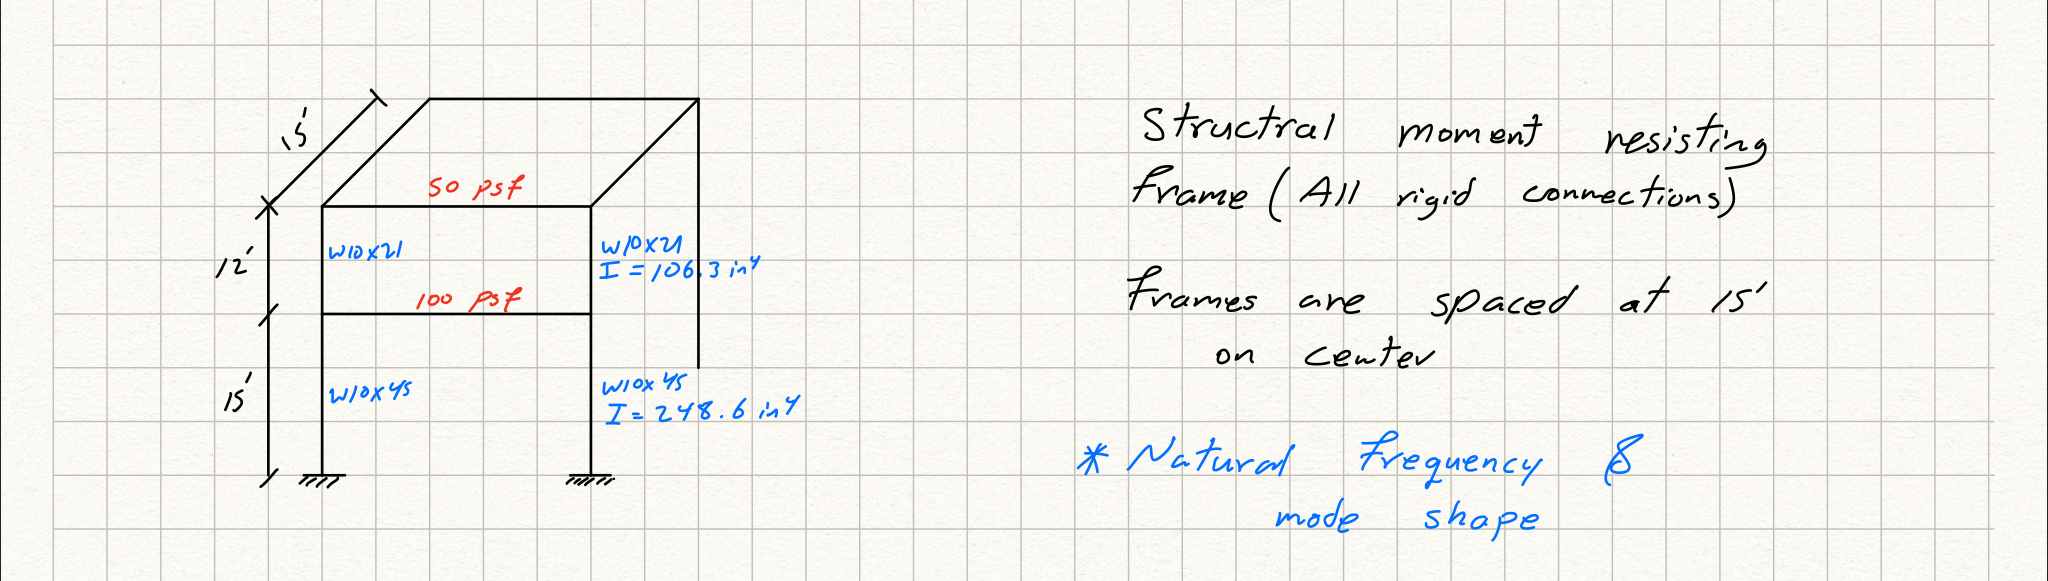 15'
50 psf
12'
W10x21
W10x21
I = 106.3 in4
100 psf
15'
W10x45
W10x45
I = 248.6 in4
Structral moment resisting
frame (All rigid connections)
Frames are spaced at 15'
on center
* Natural Frequency &
mode shape